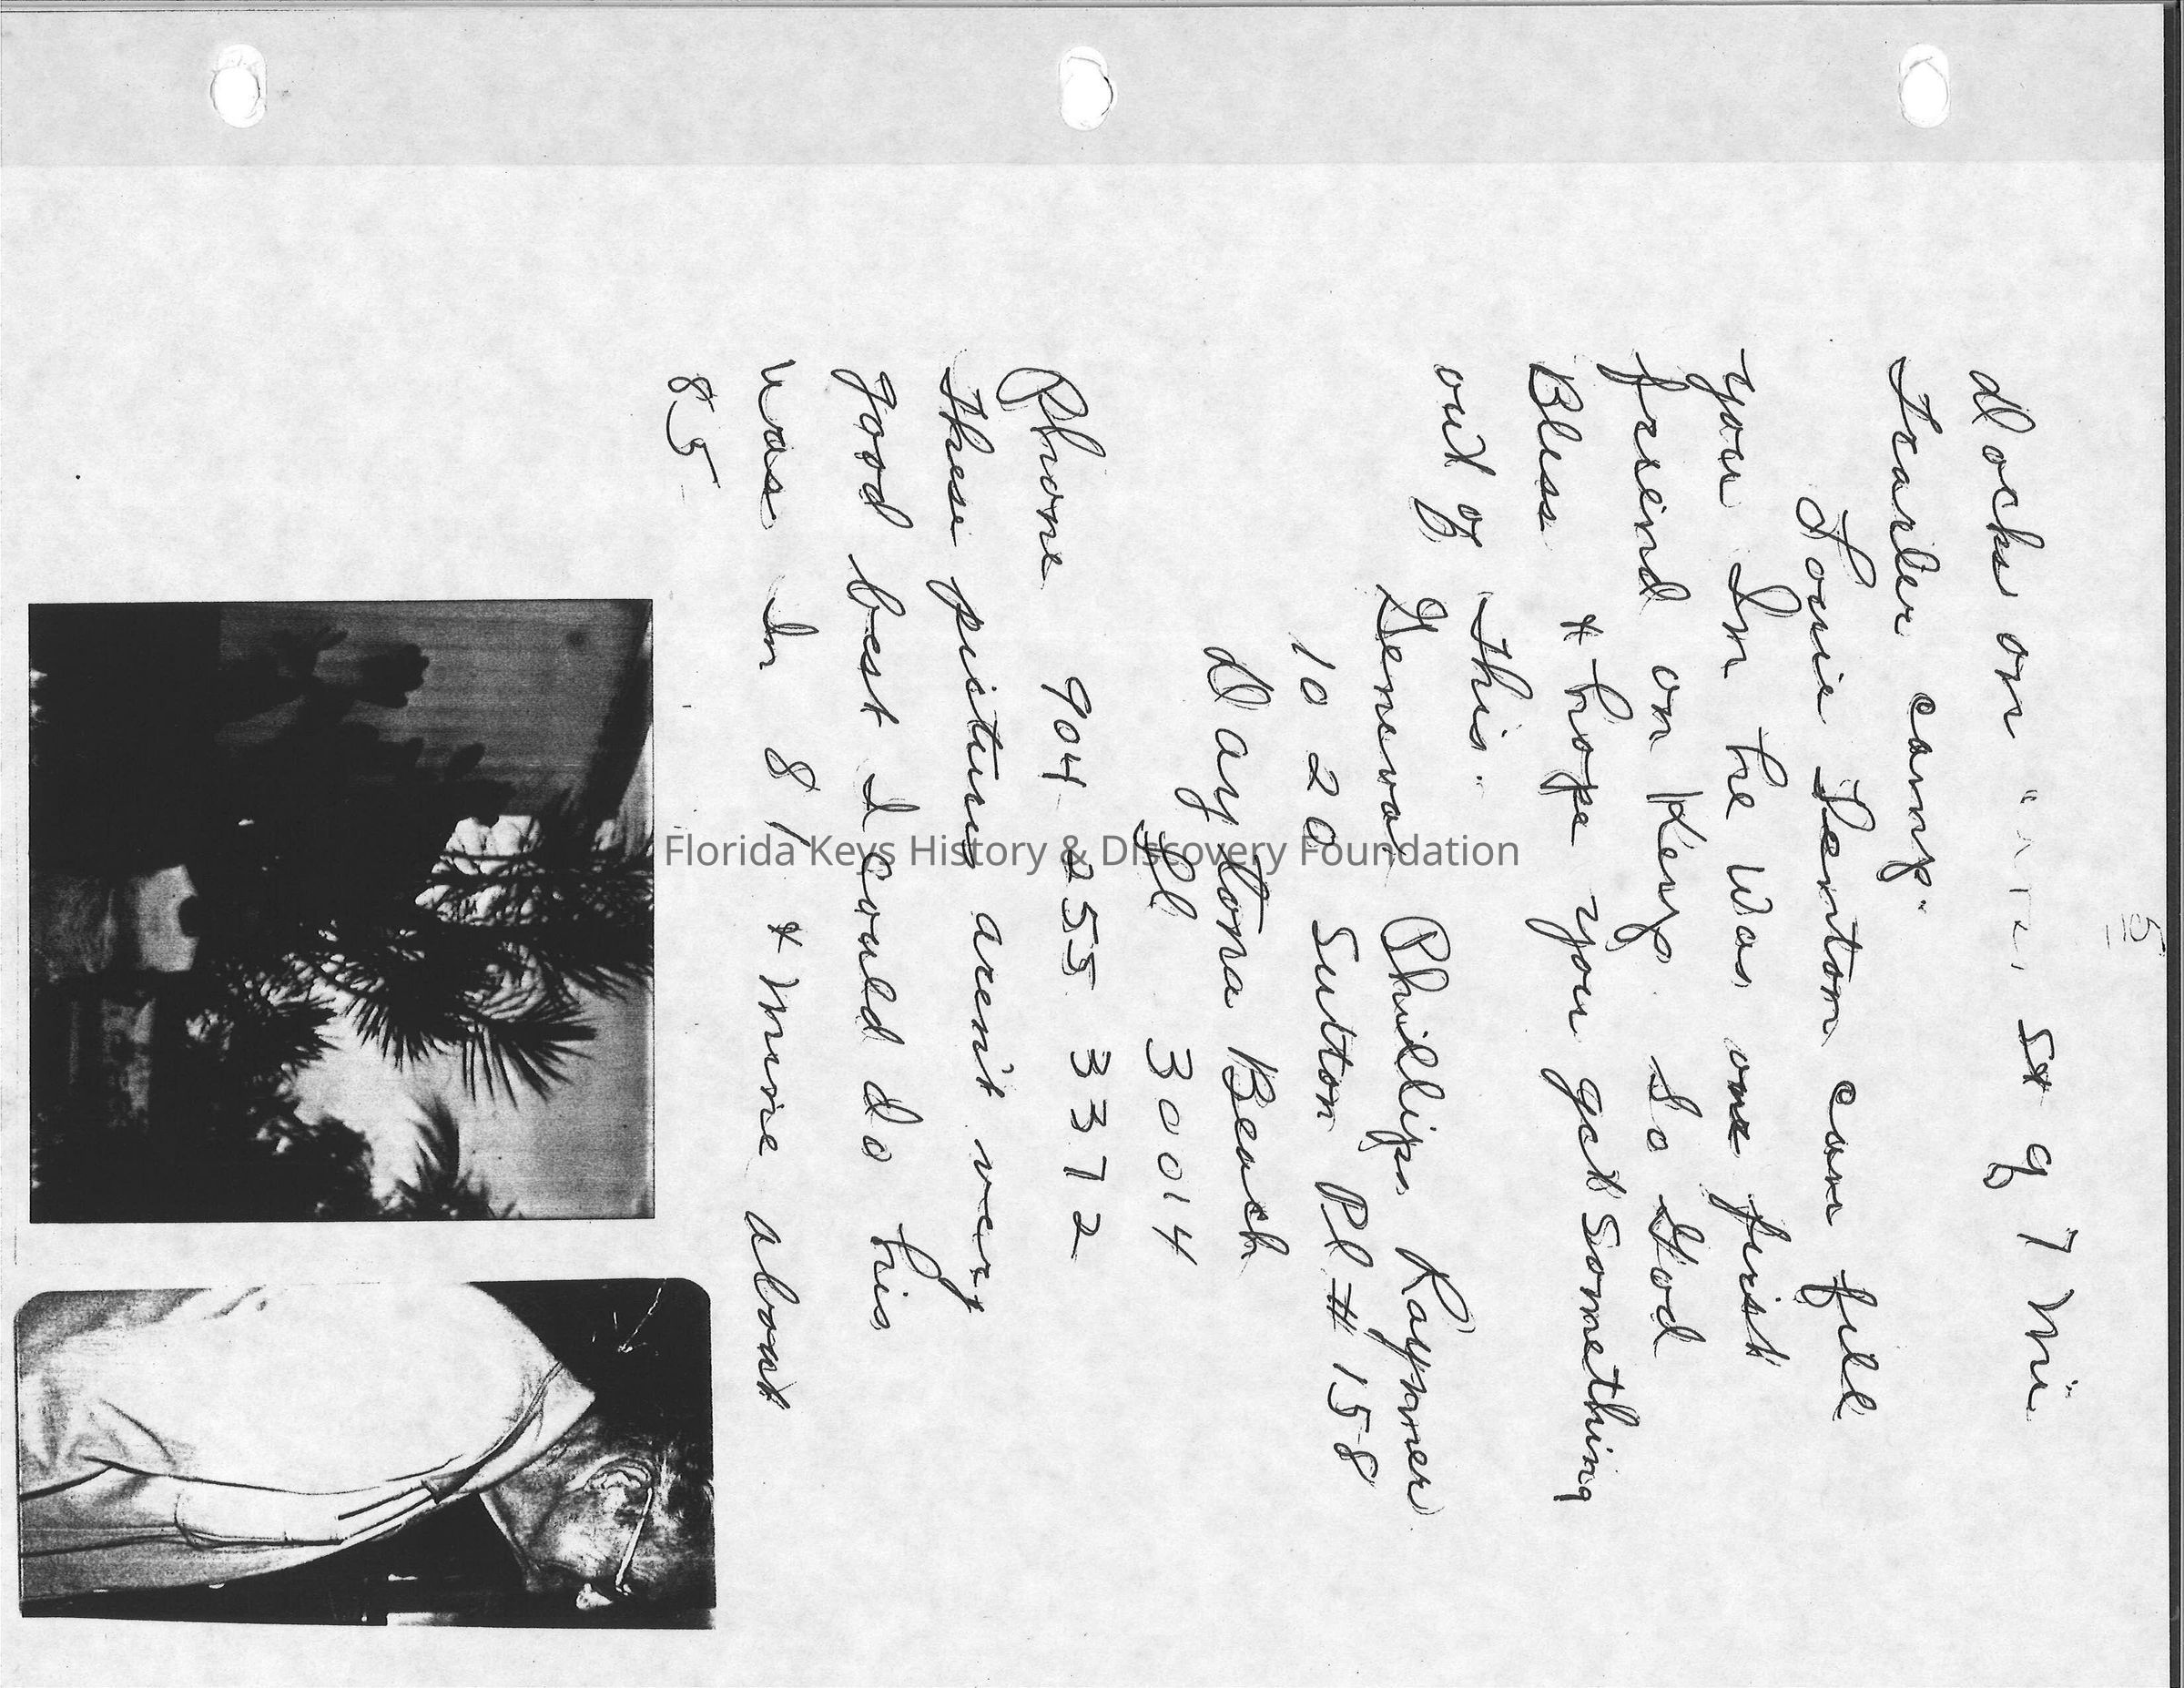 5
docks on st of 7 Mi
Trailer camp"
Louie Senton can fill
you In he was one first
freind on Key. So God
Bless + hope you get something
out of this.
Geneva Phillips Raymer
1020 Sutton Pl # 158
Daytona Beach
Fl 30014
Phone 904 255 3372
These pictures aren't very
good best I could do his
was In 81 + mine about
85
Florida Keys History & Discovery Foundation